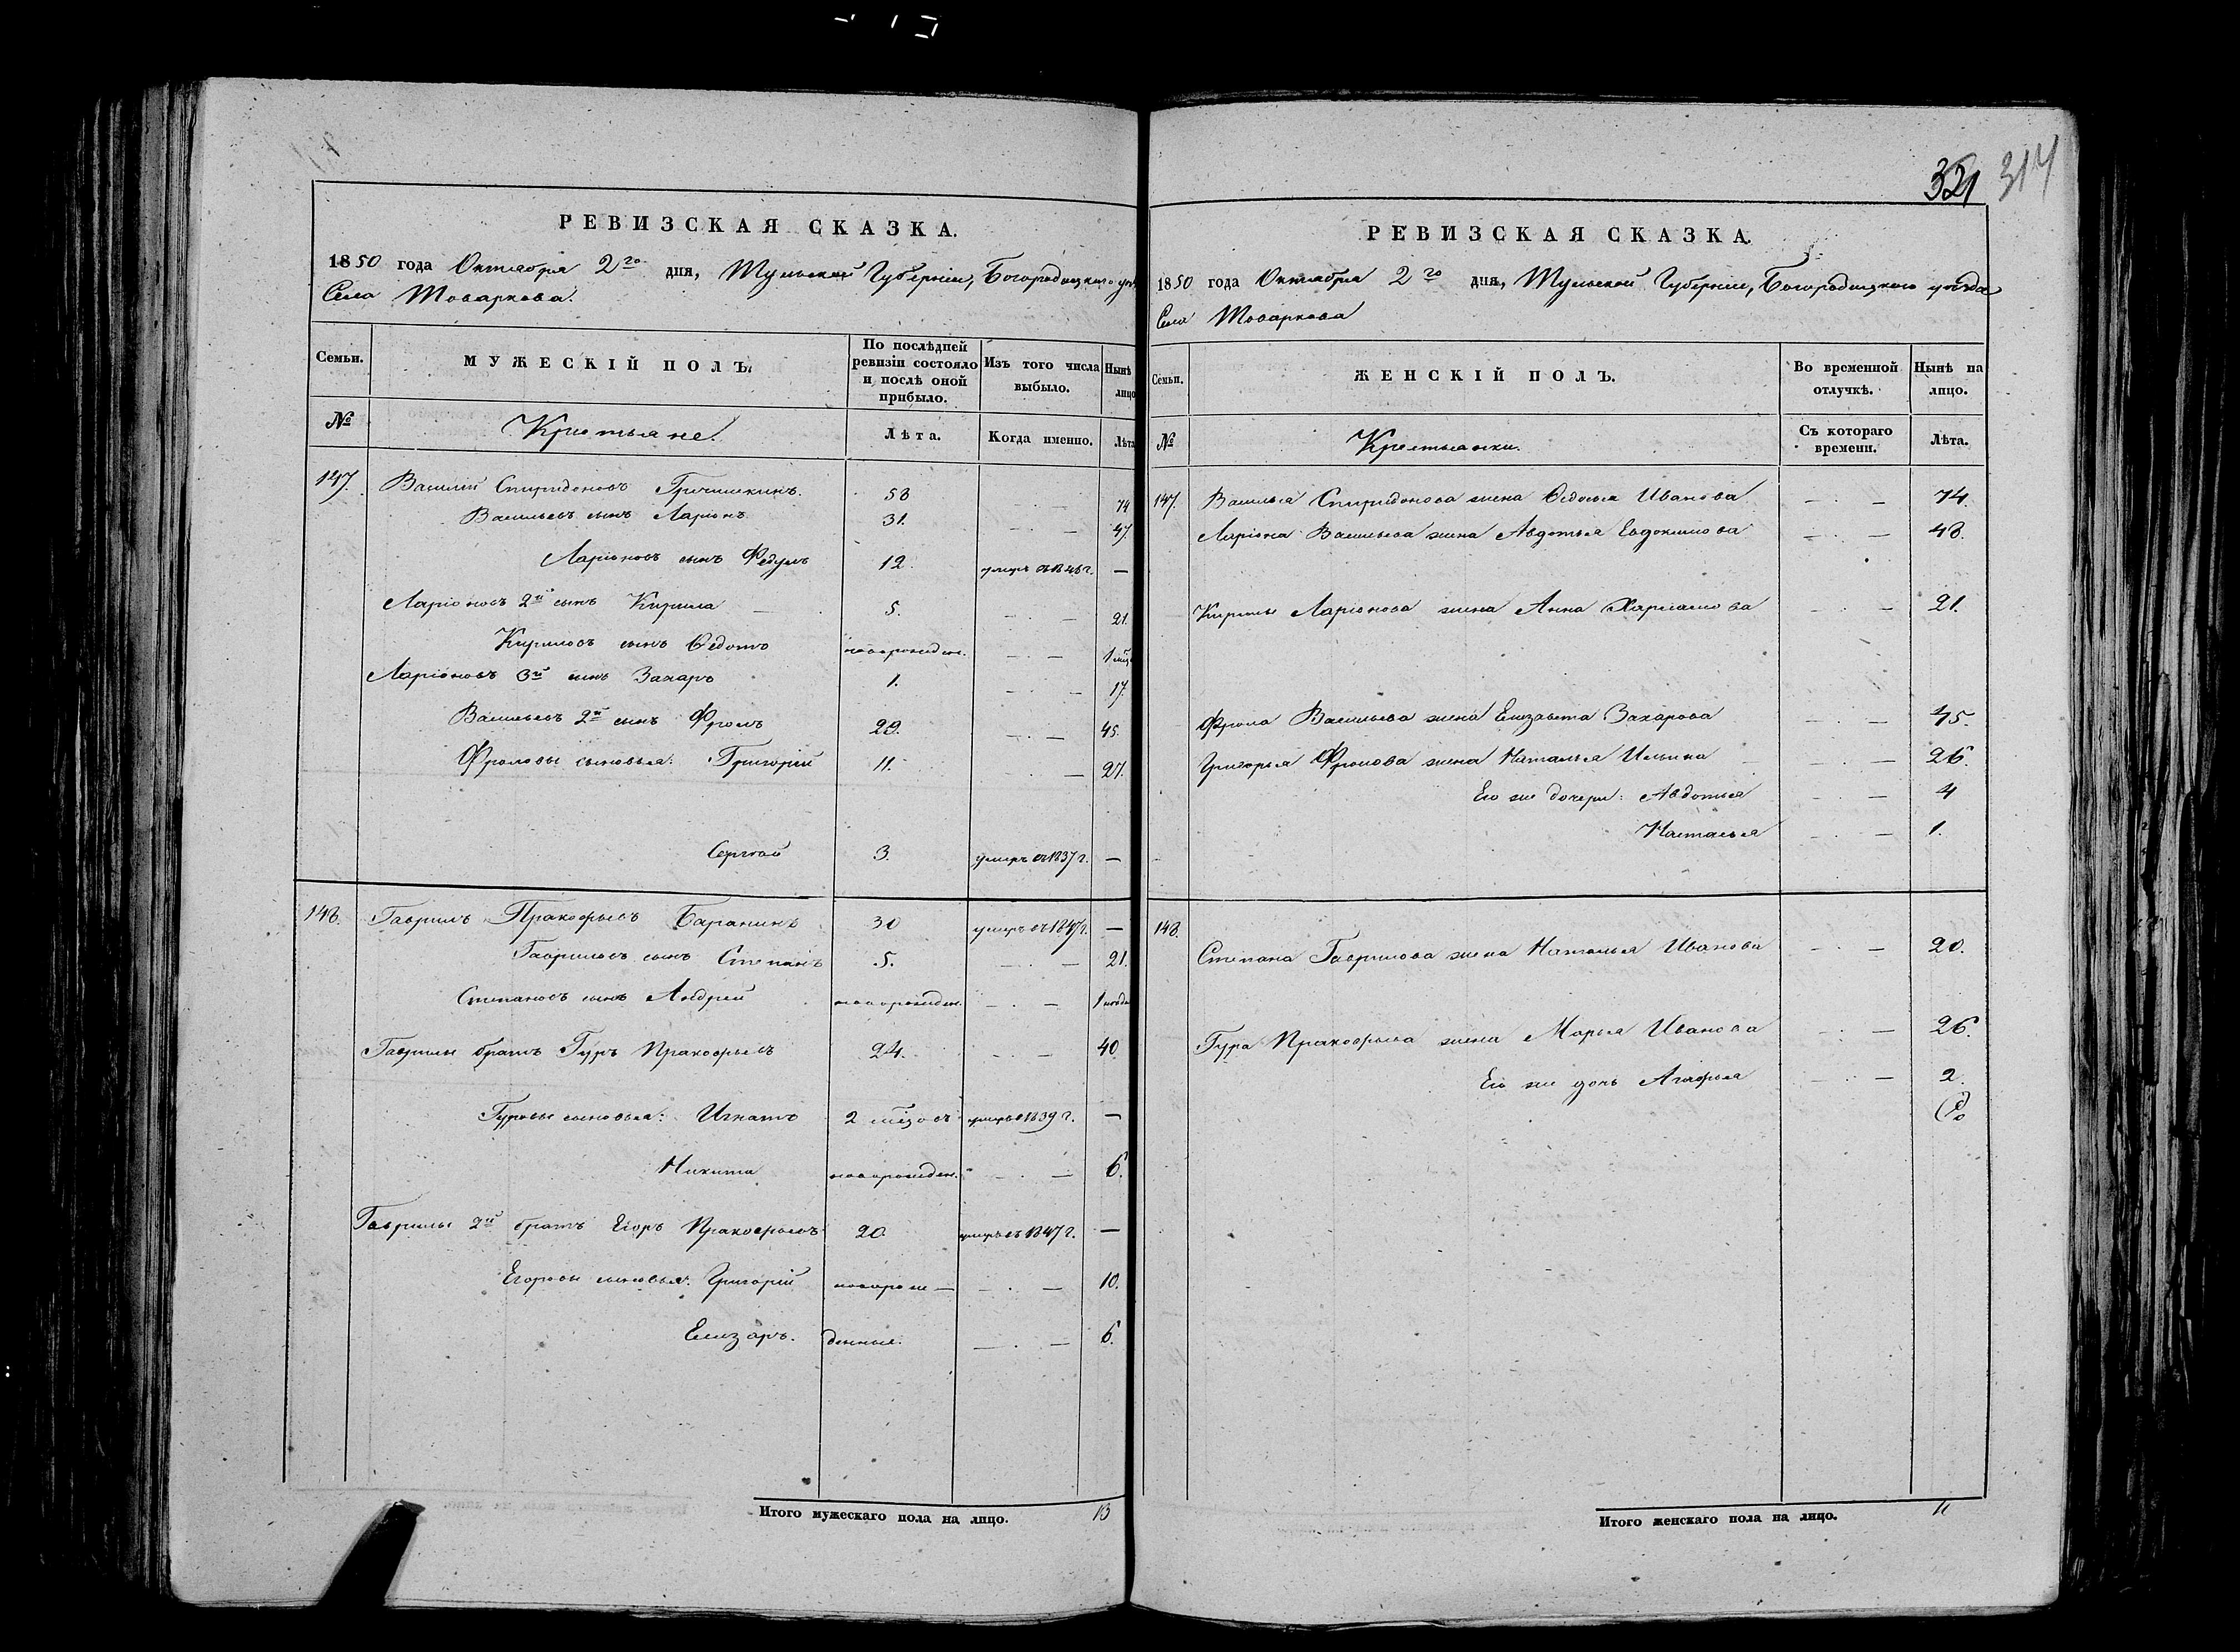 РЕВИЗСКАЯ СКАЗКА.
1850 года Октября 2го дня, Тульской Губерніи, Богородицкаго
Села Товаркова.
Семьи.
МУЖЕСКІЙ ПОЛЪ.
По послѣдней ревизіи состояло и послѣ оной прибыло.
Изъ того числа выбыло.
Нынѣ лицо
№
Крестьяне.
Лѣта.
Когда именно.
Лѣта
147. Василий Спиридоновъ Гричишкинъ. 58 — . — 74
Васильевъ сынъ Ларіонъ 31. — . — 47
Ларіоновъ сынъ Федулъ 12. умеръ въ 1848 г. —
Ларіоновъ 2й сынъ Кирила 5. — . — 21.
Кириловъ сынъ Ѳедотъ новорожден. — . — 1
Ларіоновъ 3й сынъ Захаръ 1. — . — 17.
Васильевъ 2й сынъ Фролъ 29. — . — 45.
Фроловы сыновья: Григорій 11. — . — 27.
Сергѣй 3. умеръ въ 1837 г. —
148. Гаврилъ Пракофьевъ Баранинъ 30 умеръ въ 1847 г. —
Гавриловъ сынъ Степанъ 5. — . — 21.
Степановъ сынъ Андрей новорожден. — . — 1
Гаврилы братъ Гуръ Пракофьевъ 24. — . — 40
Гуровы сыновья: Игнатъ 2 умеръ въ 1839 г. —
Никита новорожден. — . — 6.
Гаврилы 2й братъ Егоръ Пракофьевъ 20. умеръ въ 1847 г. —
Егоровы сыновья: Григорій новорож— — . — 10.
Елизаръ. денные. — . — 6.
Итого мужескаго пола на лицо. 13
321 314
РЕВИЗСКАЯ СКАЗКА.
1850 года Октября 2го дня, Тульской Губерніи, Богородицкаго уѣзда
Села Товаркова
Семьи.
ЖЕНСКІЙ ПОЛЪ.
Во временной отлучкѣ.
Нынѣ на лицо.
№
Крестьянки.
Съ котораго времени.
Лѣта.
147. Василья Спиридонова жена Ѳедосья Иванова — . — 74.
Ларіона Васильева жена Авдотья Евдокимова — . — 48.
Кирилы Ларіонова жена Анна Харламова — . — 21.
Фрола Васильева жена Елизавета Захарова — . — 45.
Григорья Фролова жена Наталья Ильина — . — 26.
Его же дочери: Авдотья — . — 4
Наталья — . — 1.
148.
Степана Гаврилова жена Наталья Иванова — . — 20.
Гура Пракофьева жена Марья Иванова — . — 26.
Его же дочь Агафья — . — 2.
Итого женскаго пола на лицо.